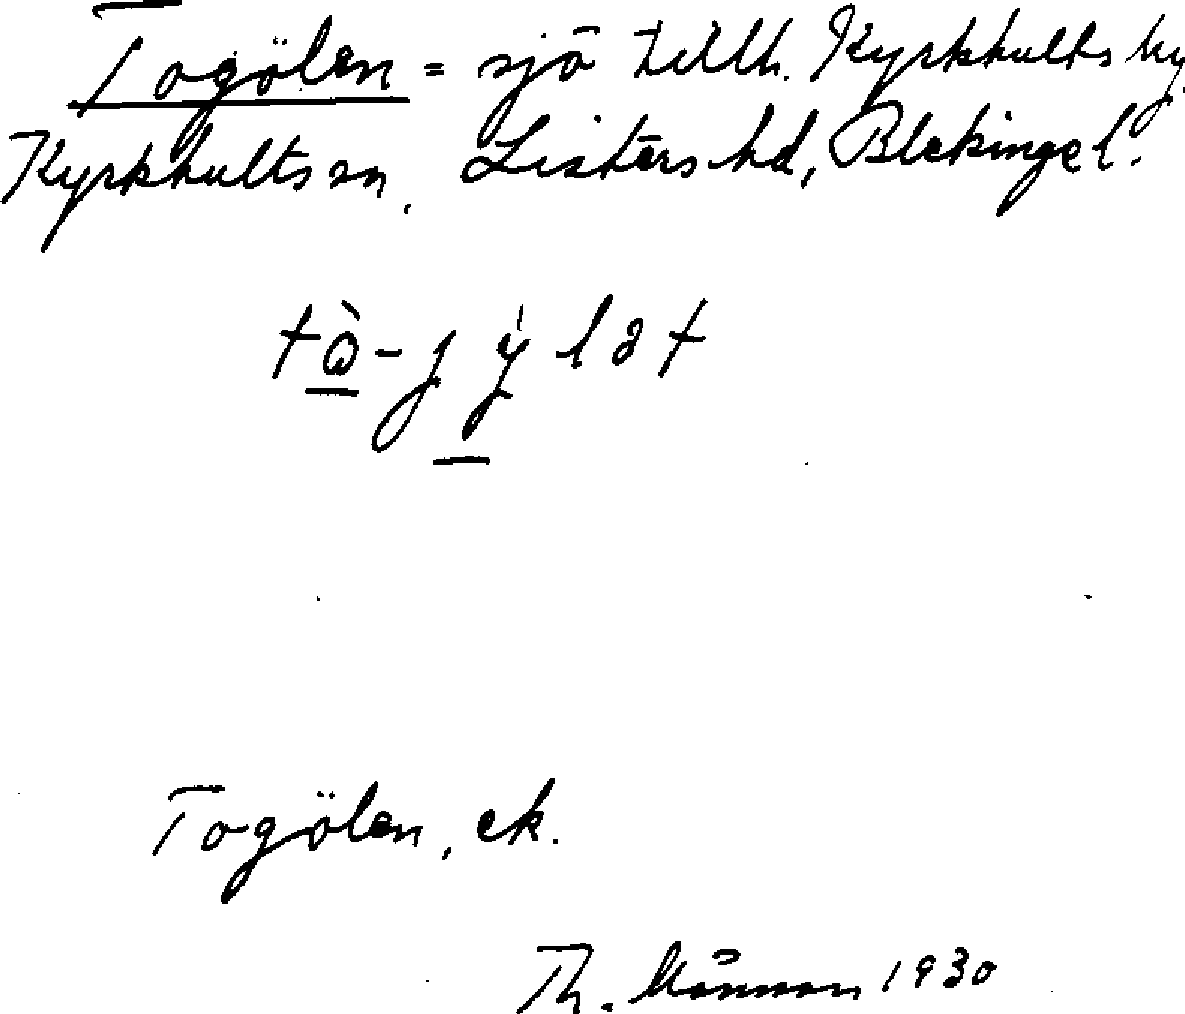 Togölen = sjö tillh. Kyrkhults by
Kyrkhults sn. Listers hd, Blekinge l.
Togölen, ek.
Th. Månsson 1930